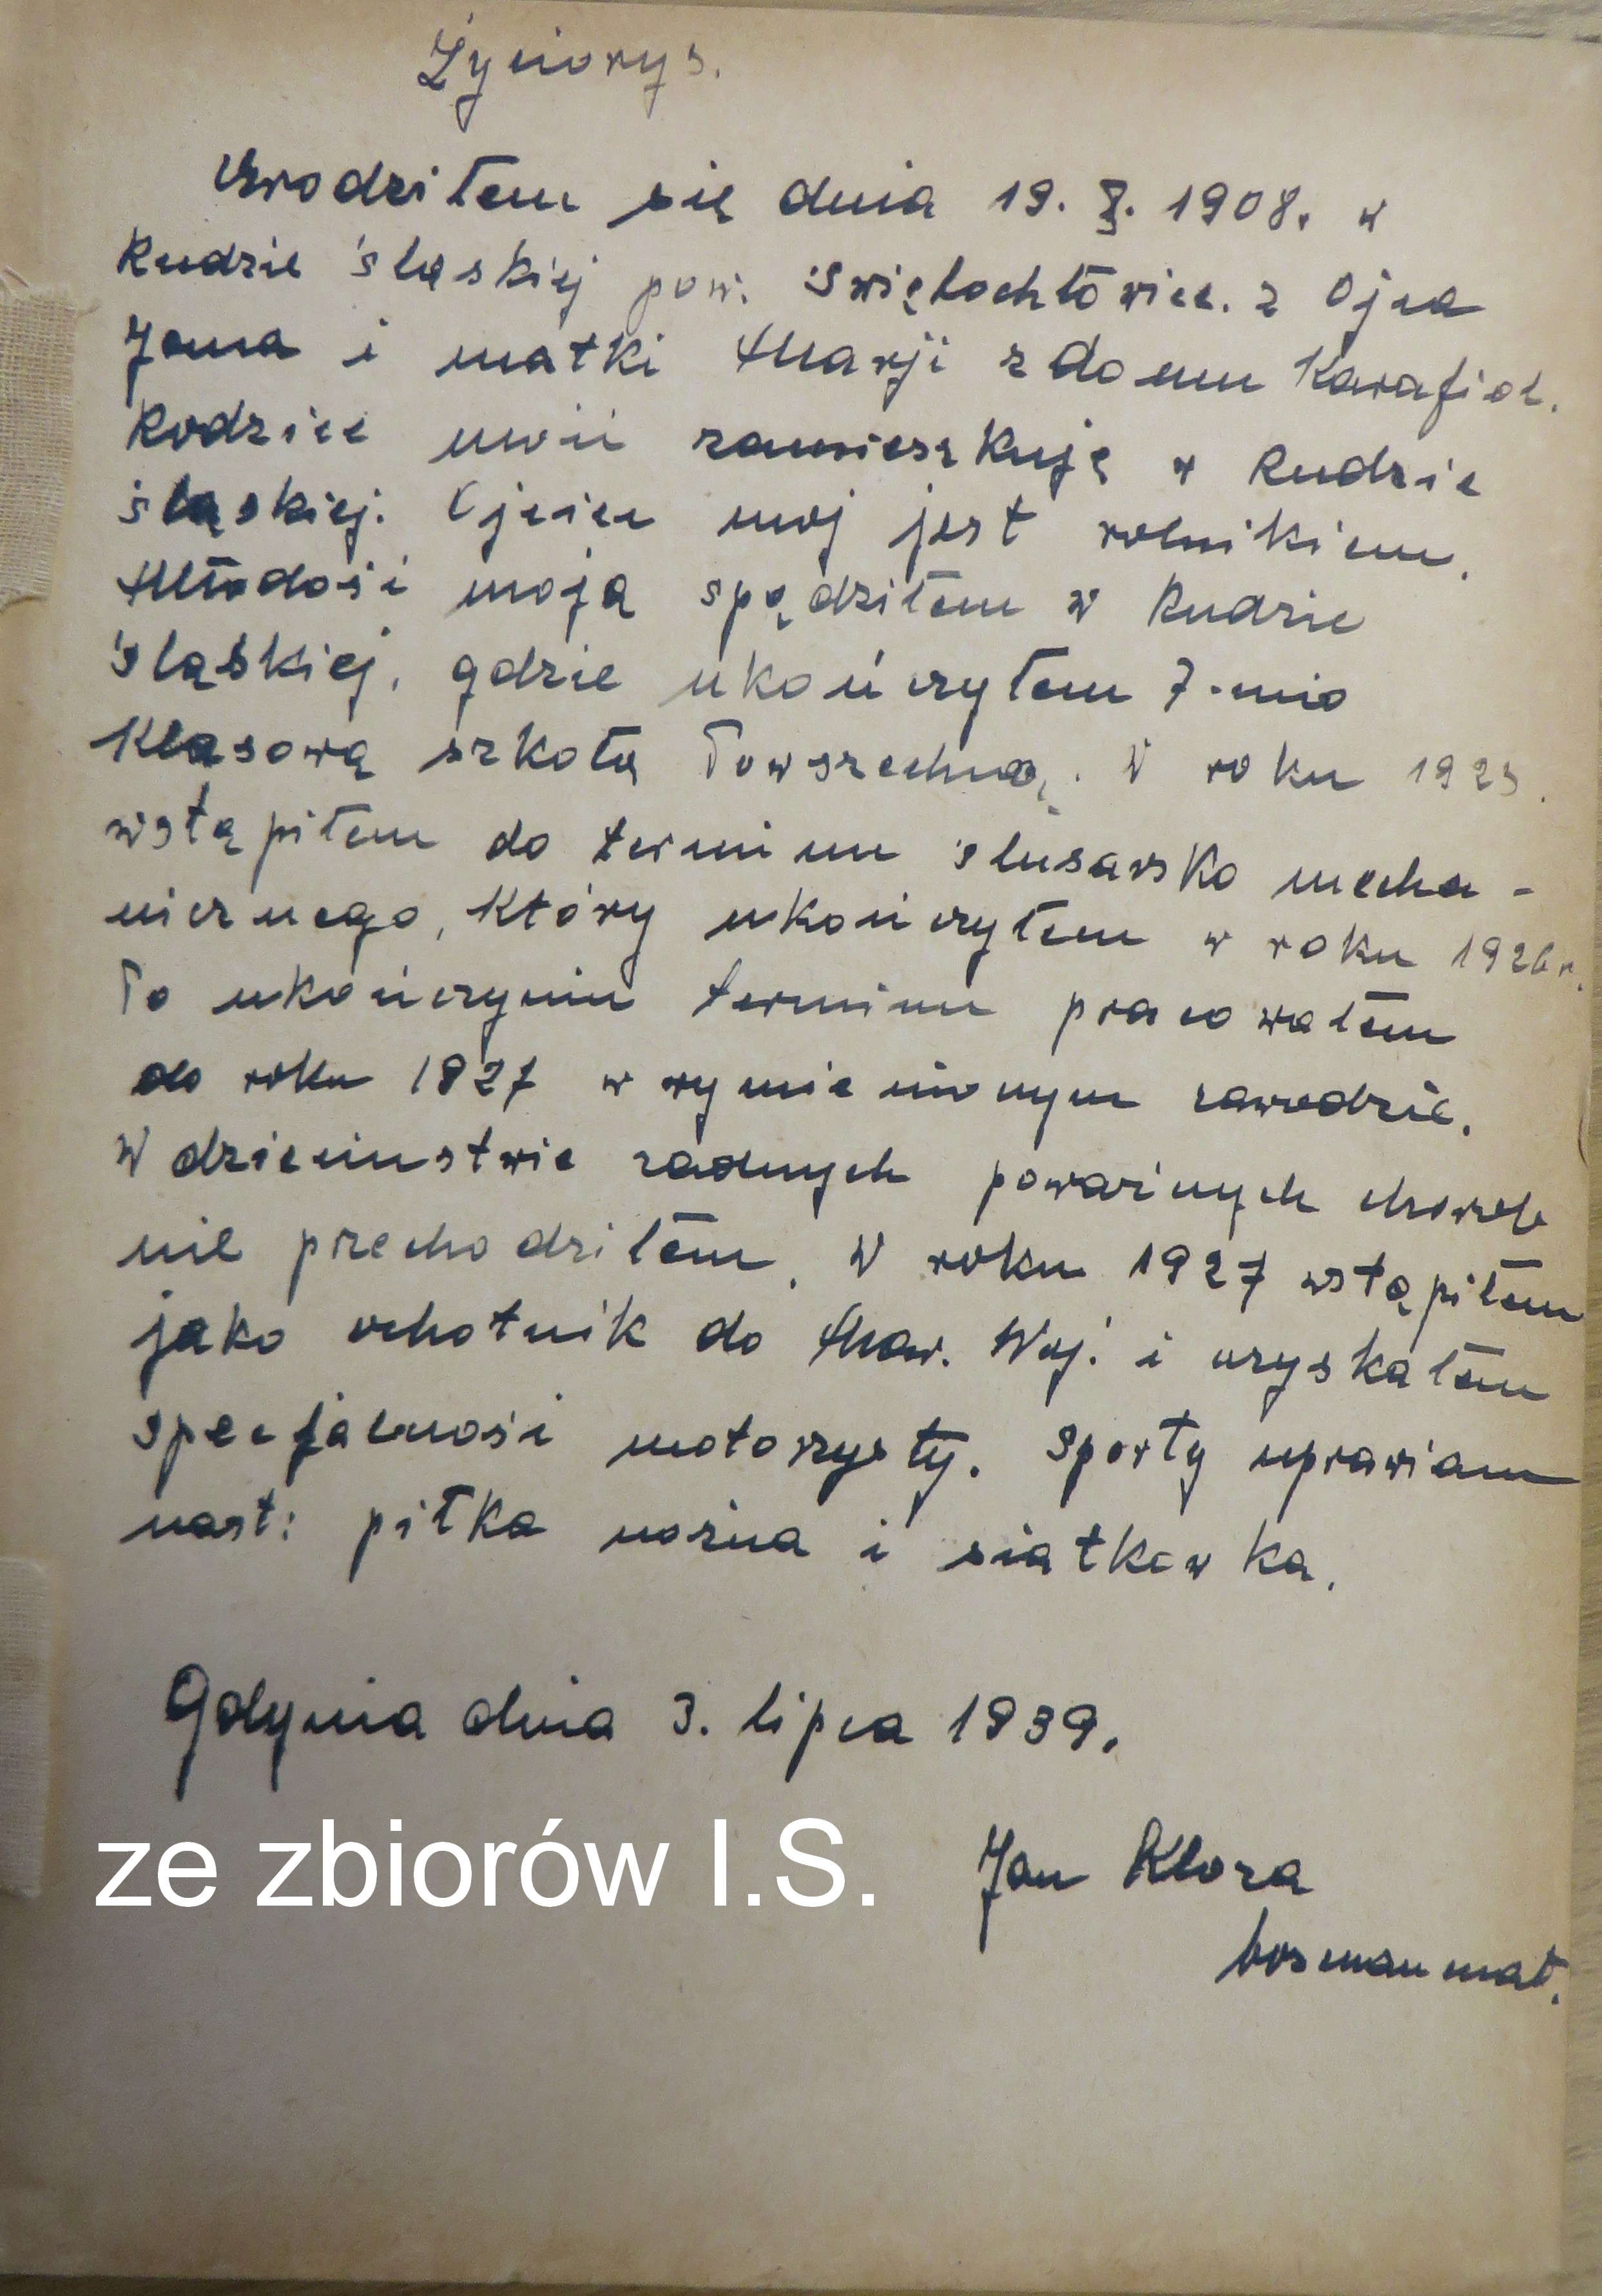 Życiorys.
Urodziłem się dnia 19. X. 1908. w
Rudzie Śląskiej pow. Świętochłowice. z Ojca
Jana i matki Marji z domu Karafiol.
Rodzice moii zamieszkuję w Rudzie
śląskiej. Ojciec moj jest rolnikiem.
Młodość moją spędziłem w Rudzie
Śląskiej, gdzie ukończyłem 7-mio
Klasową szkołę Powszechną. W roku 1923.
wstąpiłem do terminu ślusarsko mecha-
nicznego, Który ukończyłem w roku 1926 r.
Po ukończyniu terminu pracowałem
do roku 1927 w wymienionym zawodzie.
W dziecinstwie zadnych poważnych chorob
nie przechodziłem. W roku 1927 wstąpiłem
jako ochotnik do Mar. Woj. i uzyskałem
specjalność motorzysty. Sporty uprawiam
nast: piłka nożna i siatkowka.
Gdynia dnia 3. lipca 1939.
ze zbiorów I.S.
Jan Kloza
bosmanmat.